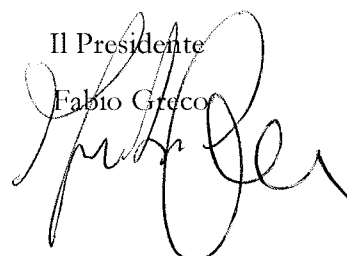 Il Presidente
Fabio Greco